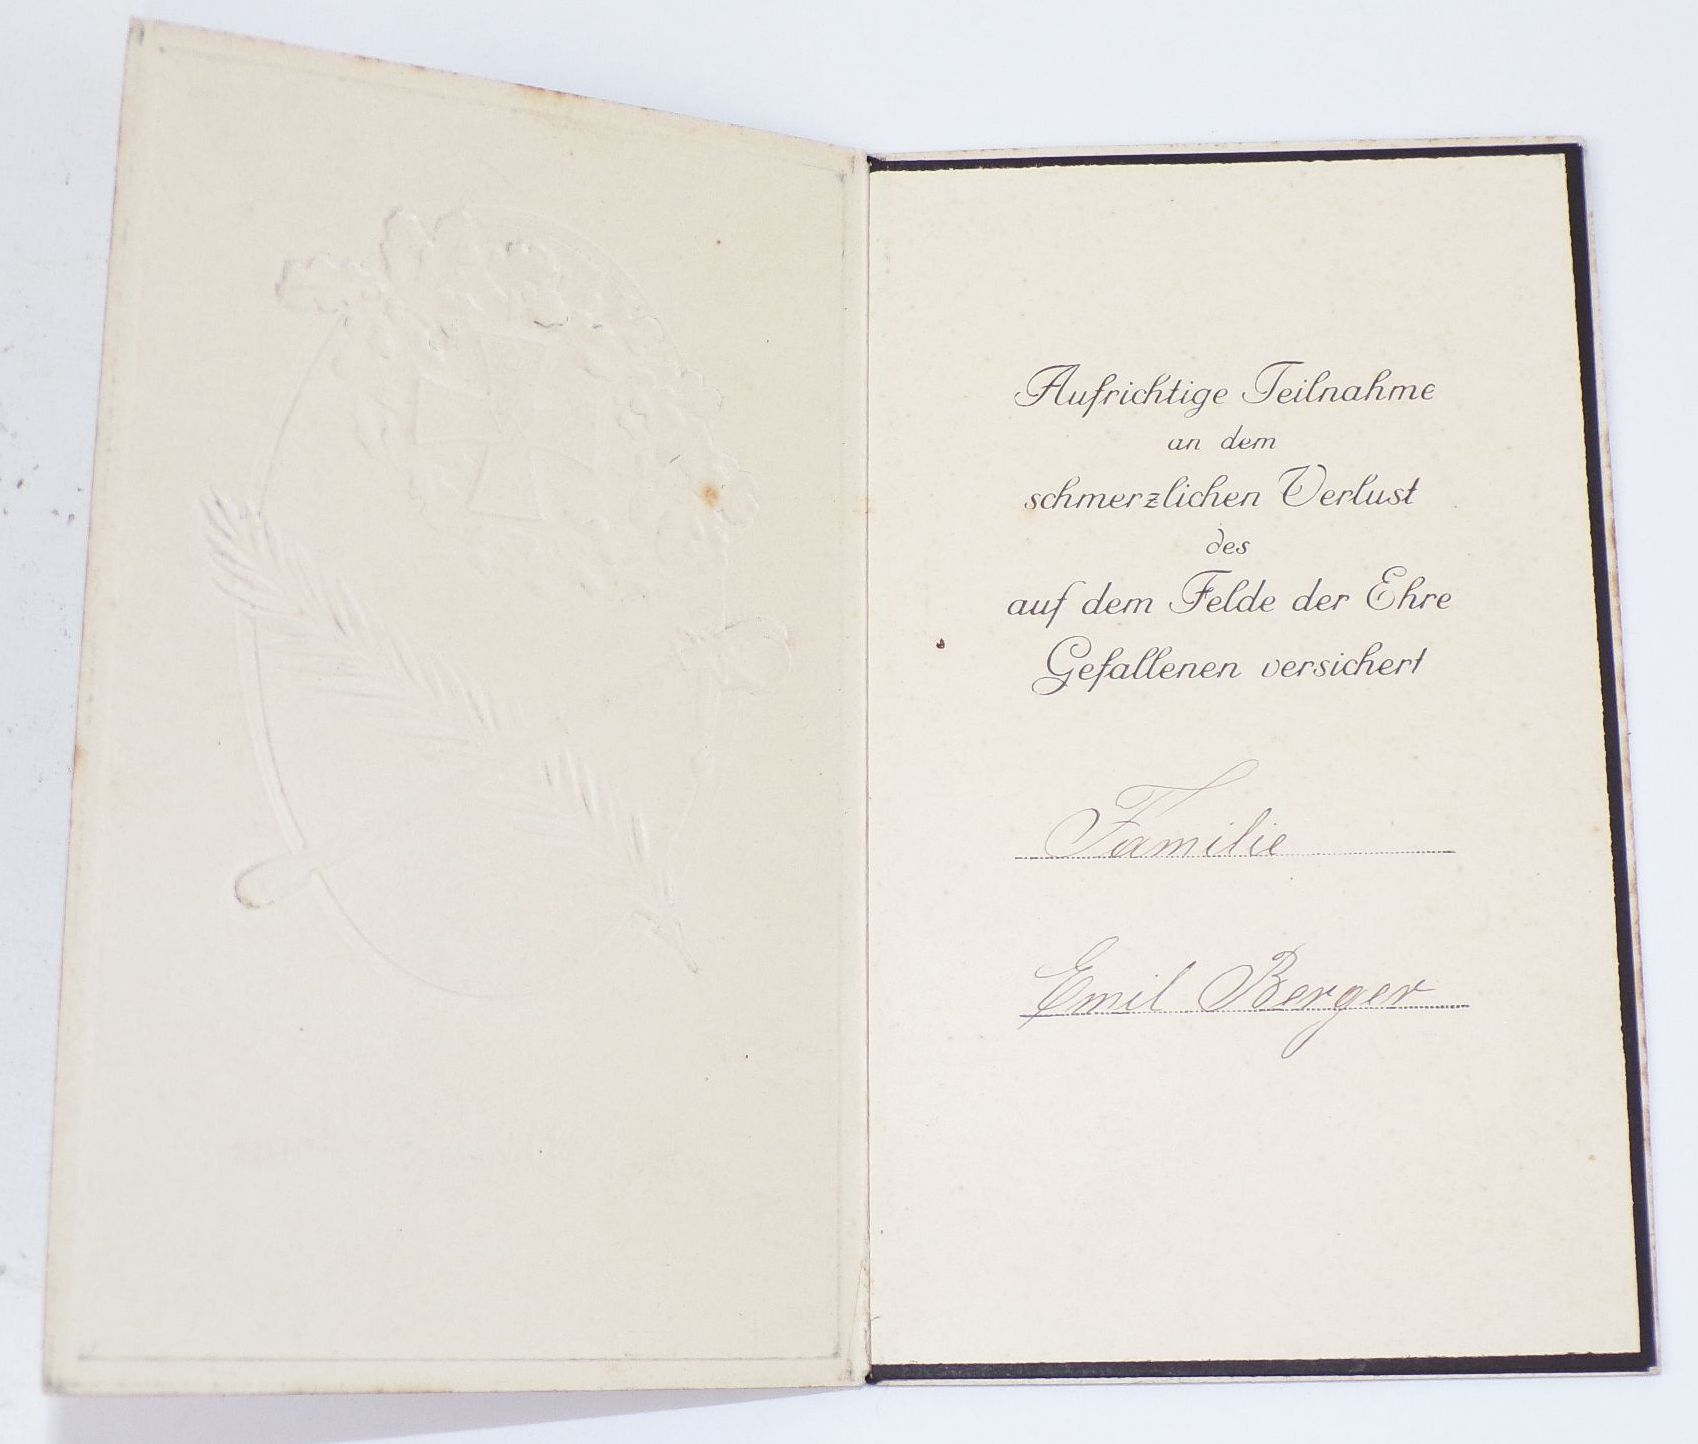 Aufrichtige Teilnahme
an dem
schmerzlichen Verlust
des
auf dem Felde der Ehre
Gefallenen versichert
Familie
Emil Berger